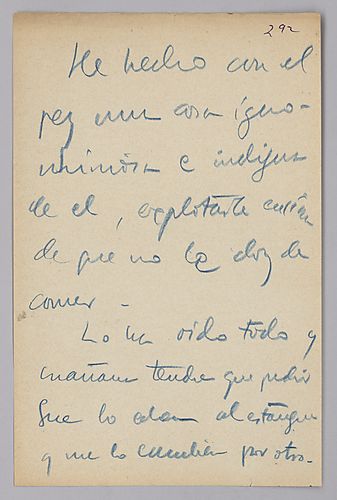 292
He hecho con el
pez una cosa igno-
miniosa e indigna
de el, explotarle encima
de que no le doy de
comer -
Lo ha oido todo y
mañana tendre que pedir
que lo echen al estanque
y me lo cambien por otro.